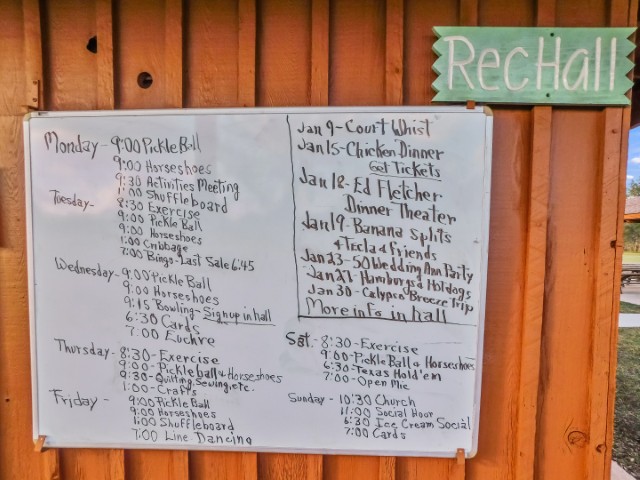 RecHall
Monday - 9:00 Pickle Ball
9:00 Horseshoes
9:30 Activities Meeting
1:00 Shuffleboard
Tuesday - 8:30 Exercise
9:00 Pickle Ball
9:00 Horseshoes
1:00 Cribbage
7:00 Bingo - Last Sale 6:45
Wednesday - 9:00 Pickle Ball
9:00 Horseshoes
9:15 Bowling - Sign up in hall
6:30 Cards
7:00 Euchre
Thursday - 8:30 - Exercise
9:00 - Pickleball & Horseshoes
9:30 - Quilting, Sewing, etc.
1:00 - Crafts
Friday - 9:00 Pickle Ball
9:00 Horseshoes
1:00 Shuffleboard
7:00 Line Dancing
Jan 9 - Court Whist
Jan 15 - Chicken Dinner
Get Tickets
Jan 18 - Ed Fletcher
Dinner Theater
Jan 19 - Banana Splits
& Tecla & Friends
Jan 23 - 50 Wedding Ann Party
Jan 27 Hamburgs & Hotdogs
Jan 30 - Calypso Breeze Trip
More info in hall
Sat. - 8:30 - Exercise
9:00 - Pickle Ball & Horseshoes
6:30 - Texas Hold'em
7:00 - Open Mic
Sunday - 10:30 Church
11:00 Social Hour
6:30 Ice Cream Social
7:00 Cards